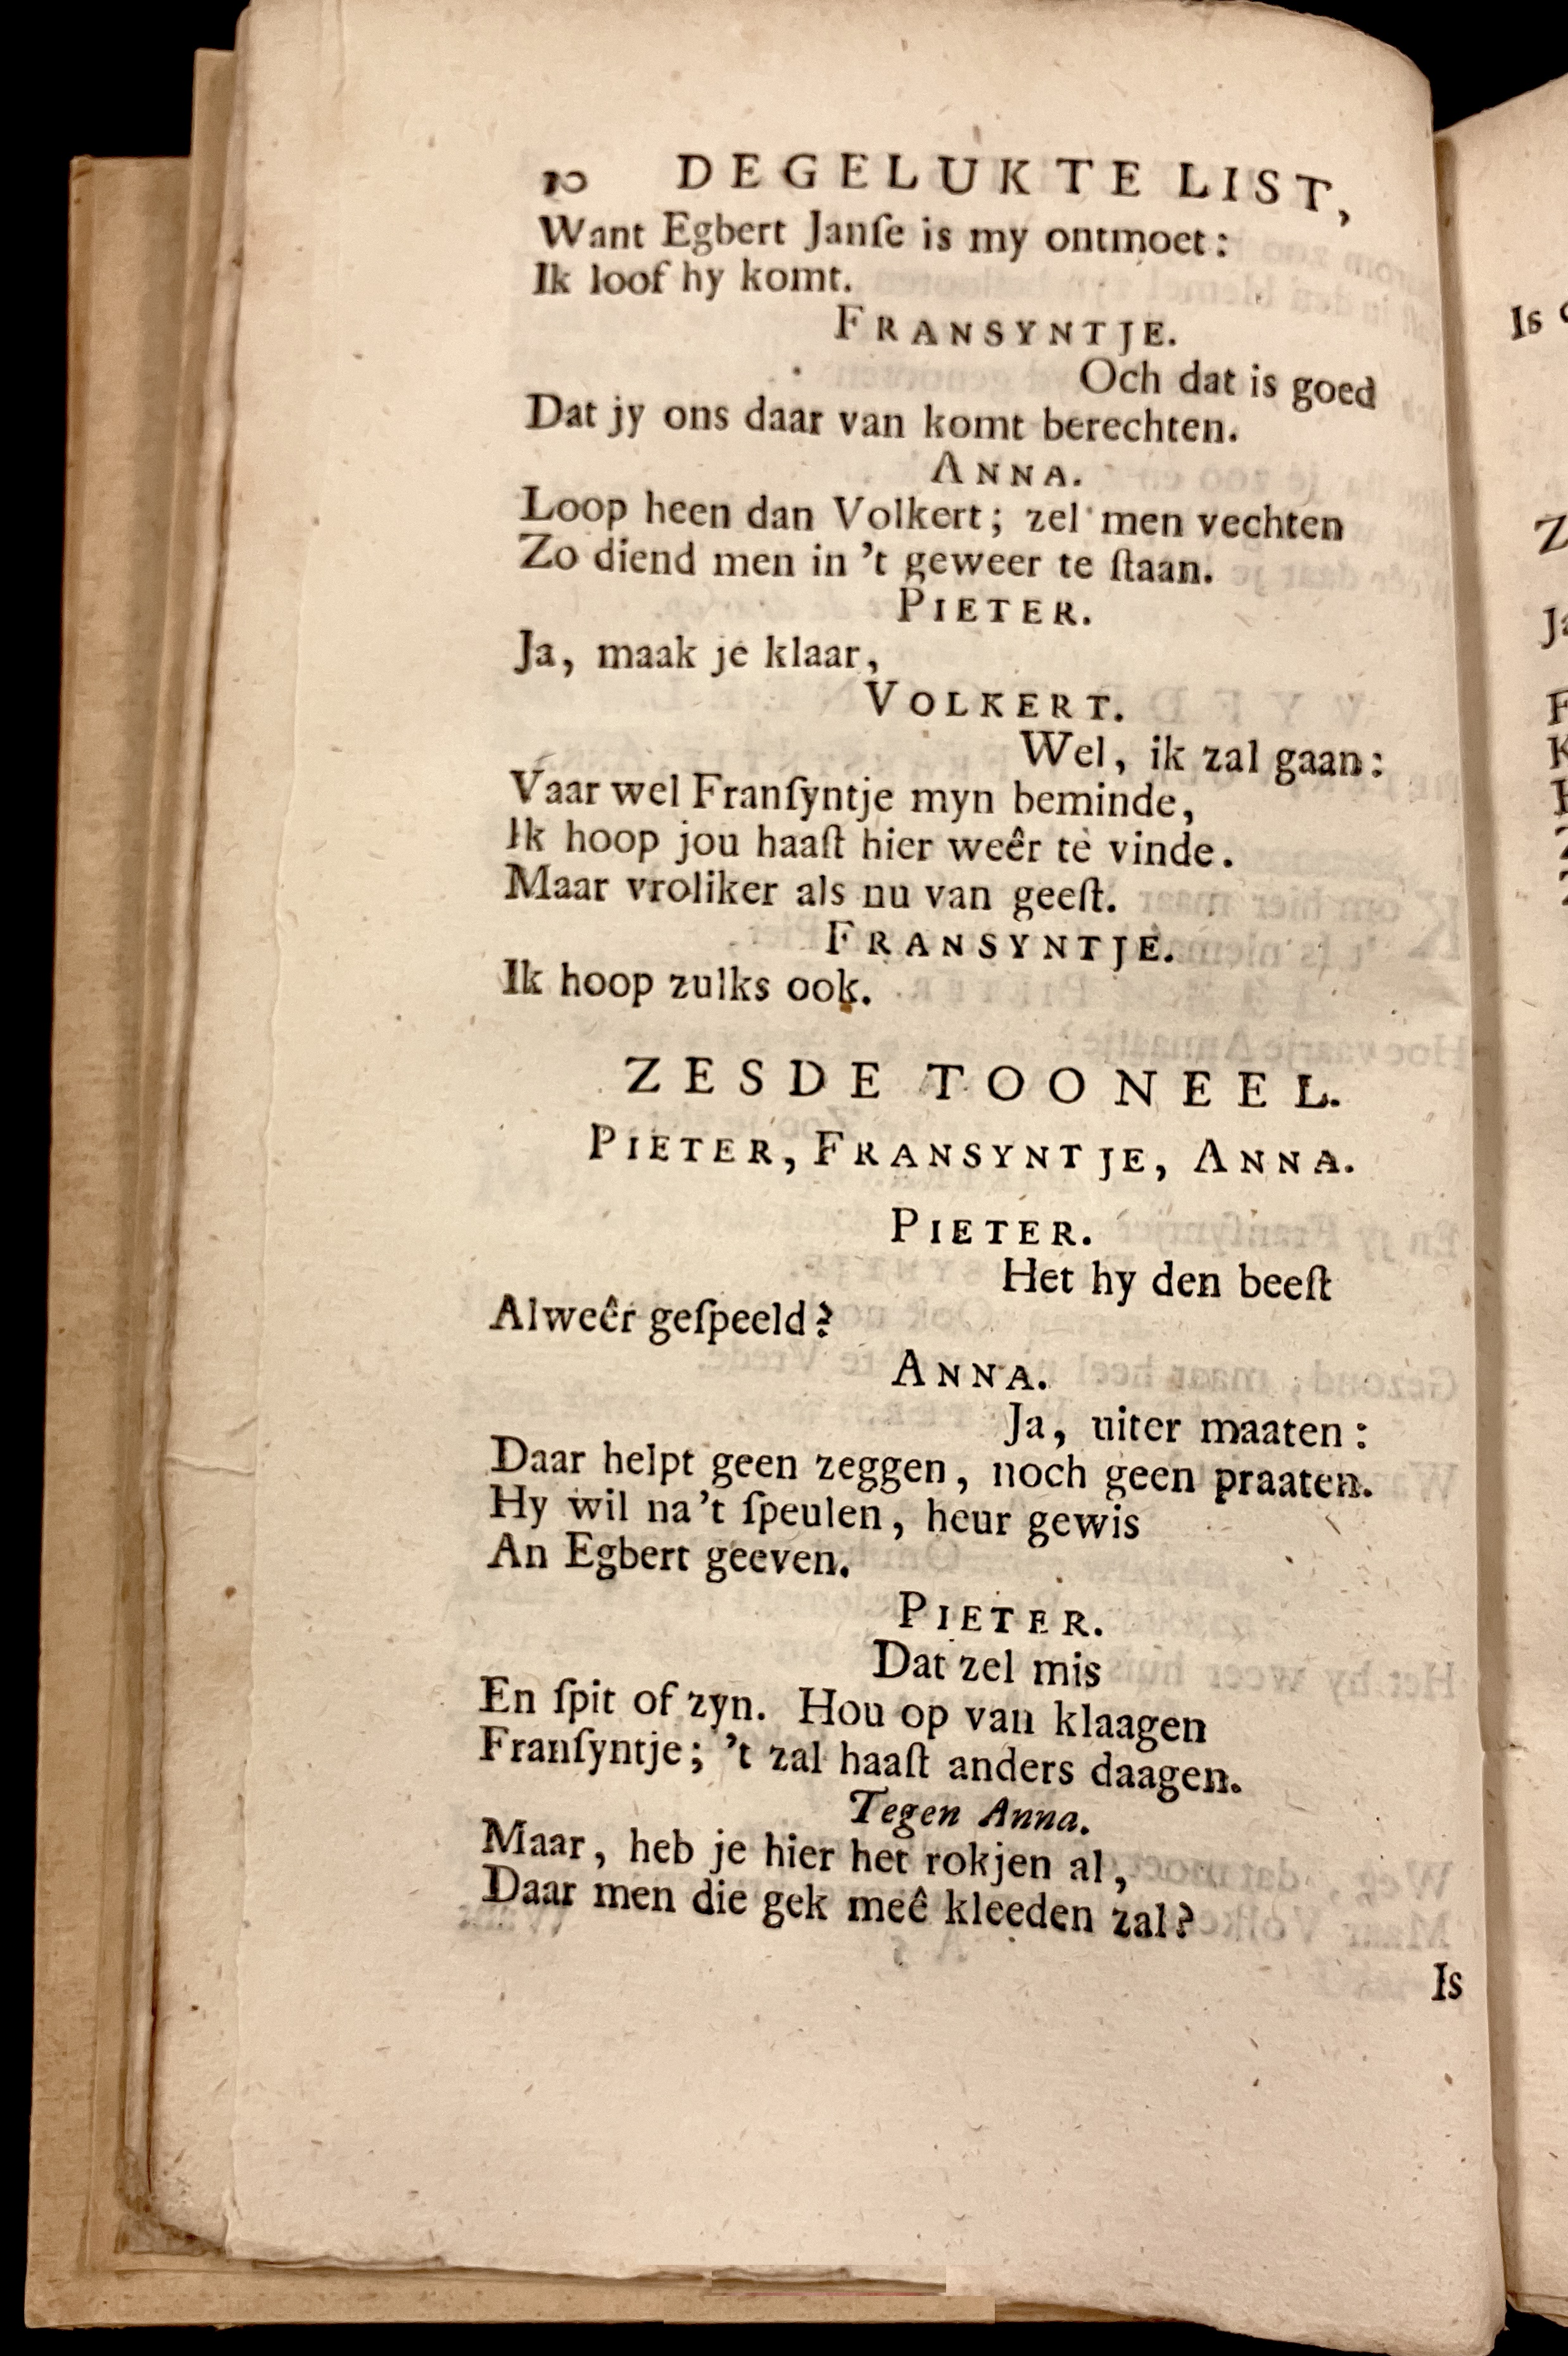 10 DE GELUKTE LIST,
Want Egbert Janſe is my ontmoet:
Ik loof hy komt.
FRANSYNTJE.
Och dat is goed
Dat jy ons daar van komt berechten.
ANNA.
Loop heen dan Volkert; zel men vechten
Zo diend men in 't geweer te ſtaan.
PIETER.
Ja, maak je klaar,
VOLKERT.
Wel, ik zal gaan:
Vaar wel Franſyntje myn beminde,
Ik hoop jou haaſt hier weêr te vinde.
Maar vroliker als nu van geeſt.
FRANSYNTJE.
Ik hoop zulks ook.
ZESDE TOONEEL.
PIETER, FRANSYNTJE, ANNA.
PIETER.
Het hy den beeſt
Alweêr geſpeeld?
ANNA.
Ja, uiter maaten:
Daar helpt geen zeggen, noch geen praaten.
Hy wil na 't ſpeulen, heur gewis
An Egbert geeven.
PIETER.
Dat zel mis
En ſpit of zyn. Hou op van klaagen
Franſyntje; 't zal haaſt anders daagen.
Tegen Anna.
Maar, heb je hier het rokjen al,
Daar men die gek meê kleeden zal?
Is
Is